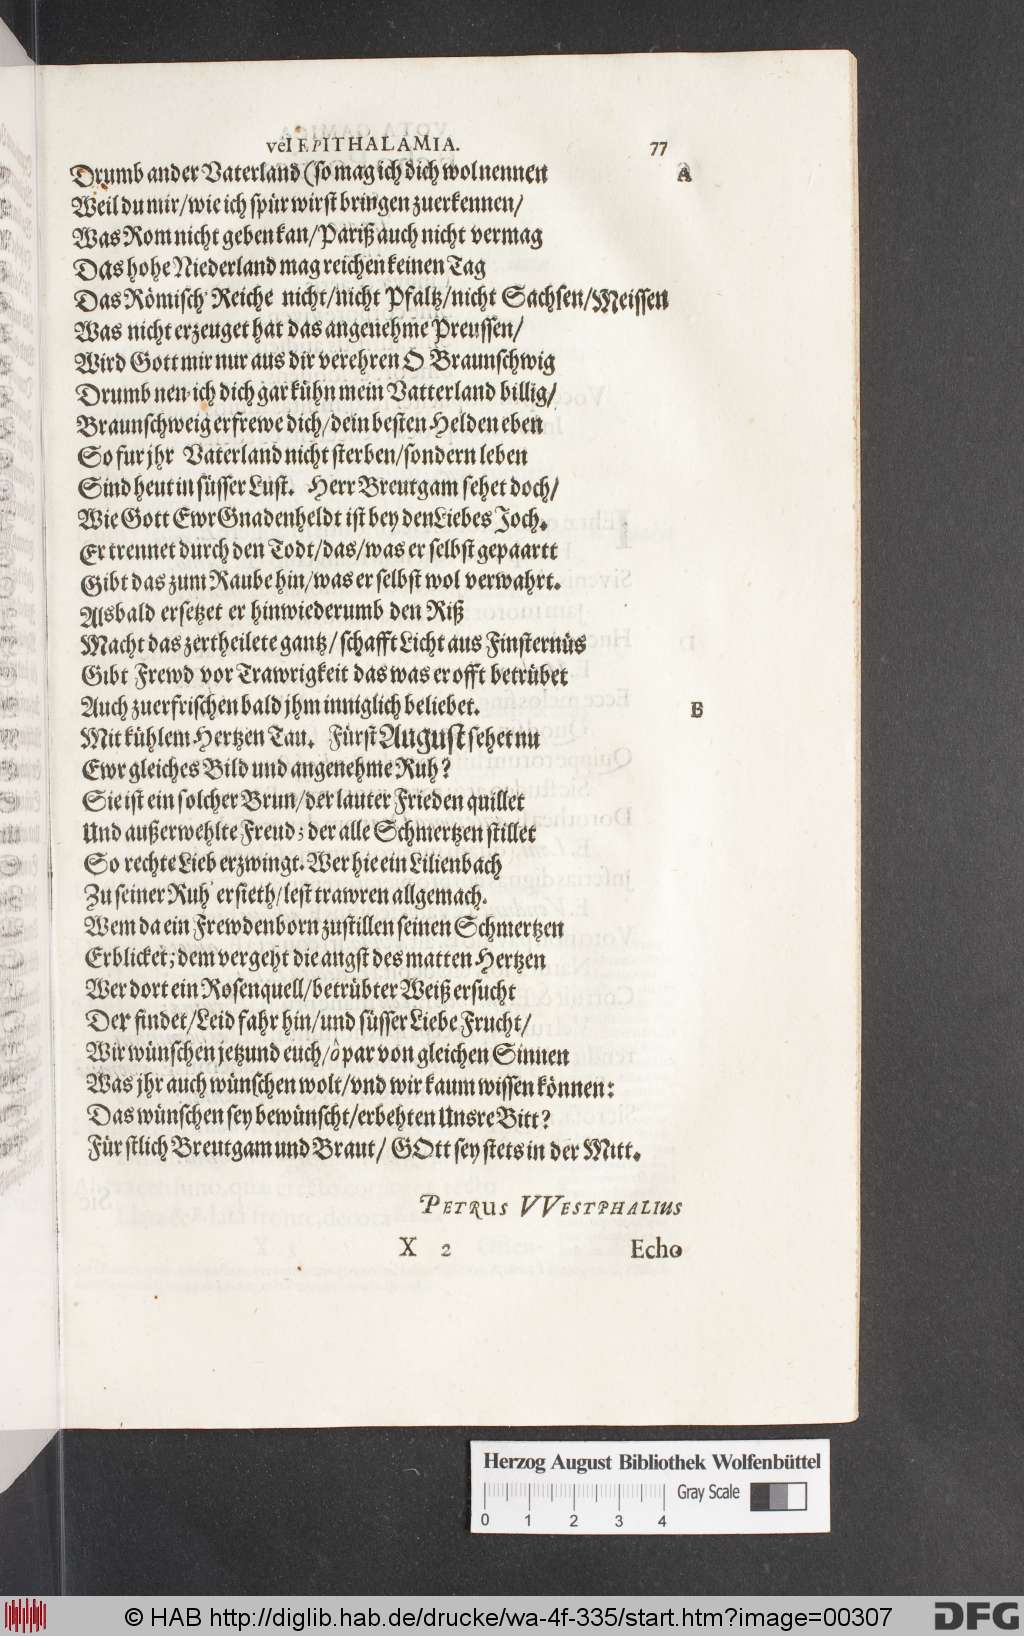 vel EPITHALAMIA. 77
Drumb ander Vaterland (so mag ich dich wol nennen A
Weil du mir/wie ich spür wirst bringen zuerkennen/
Was Rom nicht geben kan/Pariß auch nicht vermag
Das hohe Niederland mag reichen keinen Tag
Das Römisch Reiche nicht/nicht Pfaltz/nicht Sachsen/Meissen
Was nicht erzeuget hat das angenehme Preussen/
Wird Gott mir nur aus dir verehren O Braunschwig
Drumb nen ich dich gar kühn mein Vatterland billig/
Braunschweig erfrewe dich/dein besten Helden eben
So fur jhr Vaterland nicht sterben/sondern leben
Sind heut in süsser Lust. Herr Breutgam sehet doch/
Wie Gott Ewr Gnadenheldt ist bey den Liebes Joch.
Er trennet durch den Todt/das/was er selbst gepaartt
Gibt das zum Raube hin/was er selbst wol verwahrt.
Alsbald ersetzet er hinwiederumb den Riß
Macht das zertheilete gantz/schafft Licht aus Finsternüs
Gibt Frewd vor Trawrigkeit das was er offt betrübet
Auch zuerfrischen bald jhm inniglich beliebet. B
Mit kühlem Hertzen Tau. Fürst August sehet nu
Ewr gleiches Bild und angenehme Ruh?
Sie ist ein solcher Brun/der lauter Frieden quillet
Und außerwehlte Freud; der alle Schmertzen stillet
So rechte Lieb erzwingt. Wer hie ein Lilienbach
Zu seiner Ruh ersieth/lest trawren allgemach.
Wem da ein Frewdenborn zustillen seinen Schmertzen
Erblicket; dem vergeht die angst des matten Hertzen
Wer dort ein Rosenquell/betrübter Weiß ersucht
Der findet/Leid fahr hin/und süsser Liebe Frucht/
Wir wünschen jetzund euch/ô par von gleichen Sinnen
Was jhr auch wünschen wolt/vnd wir kaum wissen können:
Das wünschen sey bewünscht/erbehten Unsre Bitt?
Fürstlich Breutgam und Braut/ GOtt sey stets in der Mitt.
PETRus VVESTPHALIUS
X 2 Echo
Herzog August Bibliothek Wolfenbüttel
Gray Scale
0 1 2 3 4
© HAB http://diglib.hab.de/drucke/wa-4f-335/start.htm?image=00307 DFG